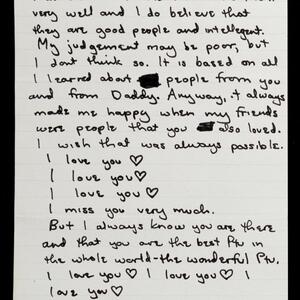 very well and I do believe that
they are good people and intellegent.
My judgement may be poor, but
I dont think so. It is based on all
I learned about people from you
and from Daddy. Anyway, it always
made me happy when my friends
were people that you also loved.
I wish that was always possible.
I love you ♡
I love you ♡
I love you ♡
I miss you very much.
But I always know you are there
and that you are the best Ptu in
the whole world-the wonderful Ptu.
I love you ♡ I love you ♡ I
love you ♡